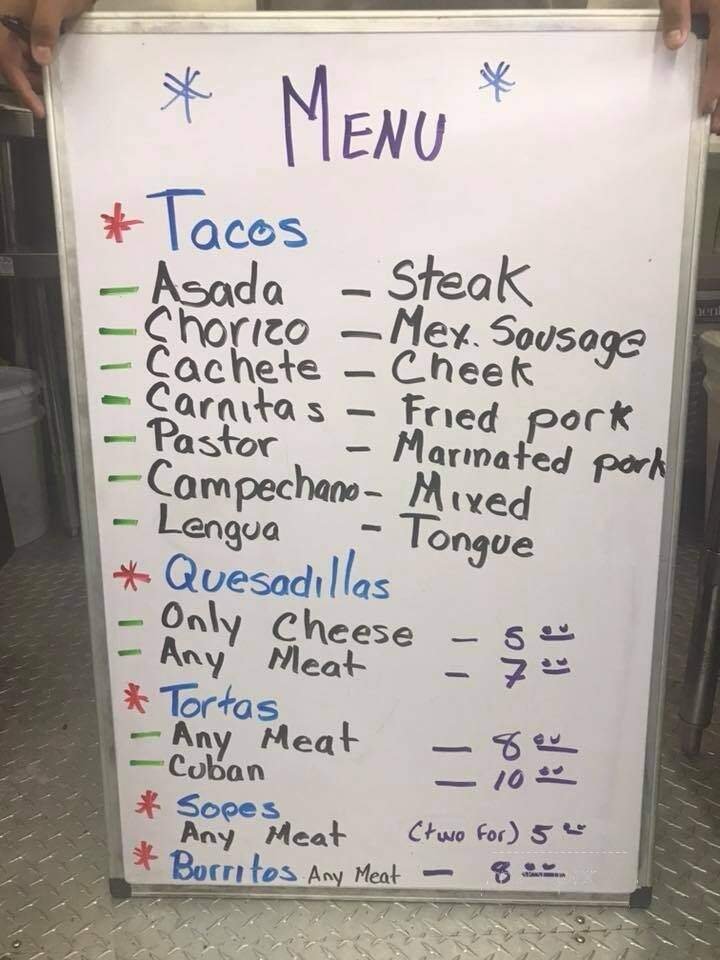 * MENU *
* Tacos
- Asada - Steak
- Chorizo - Mex. Sausage
- Cachete - Cheek
- Carnitas - Fried pork
- Pastor - Marinated pork
- Campechano - Mixed
- Lengua - Tongue
* Quesadillas
- Only Cheese - 5 00
- Any Meat - 7 00
* Tortas
- Any Meat - 8 00
- Cuban - 10 00
* Sopes
Any Meat (two for) 5 00
* Burritos Any Meat - 8 00